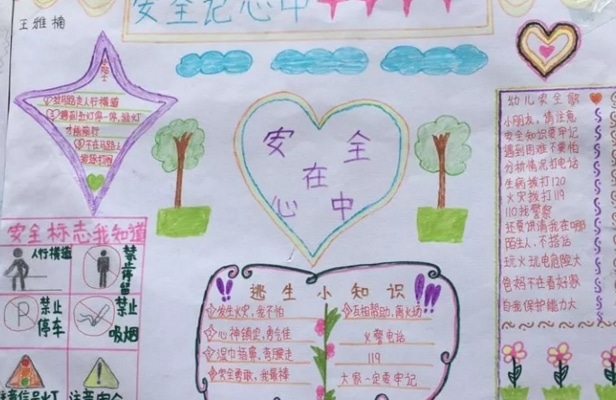 安全记心中
王雅楠
过马路走人行横道
才能前行
安全在心中
安全标志我知道
人行横道
禁止停留
禁止停车
禁止吸烟
逃生小知识
发生火灾，我不怕
心神镇定，勇气佳
安全勇敢，我最棒
互相帮助，离火场
火警电话
119
大家一定要牢记
幼儿安全歌
小朋友，请注意
安全知识要牢记
遇到困难不要怕
分析情况打电话
生病拨打120
火灾拨打119
110找警察
陌生人，不搭话
玩火玩电危险大
爸妈不在看好家
自我保护能力大
注意安全